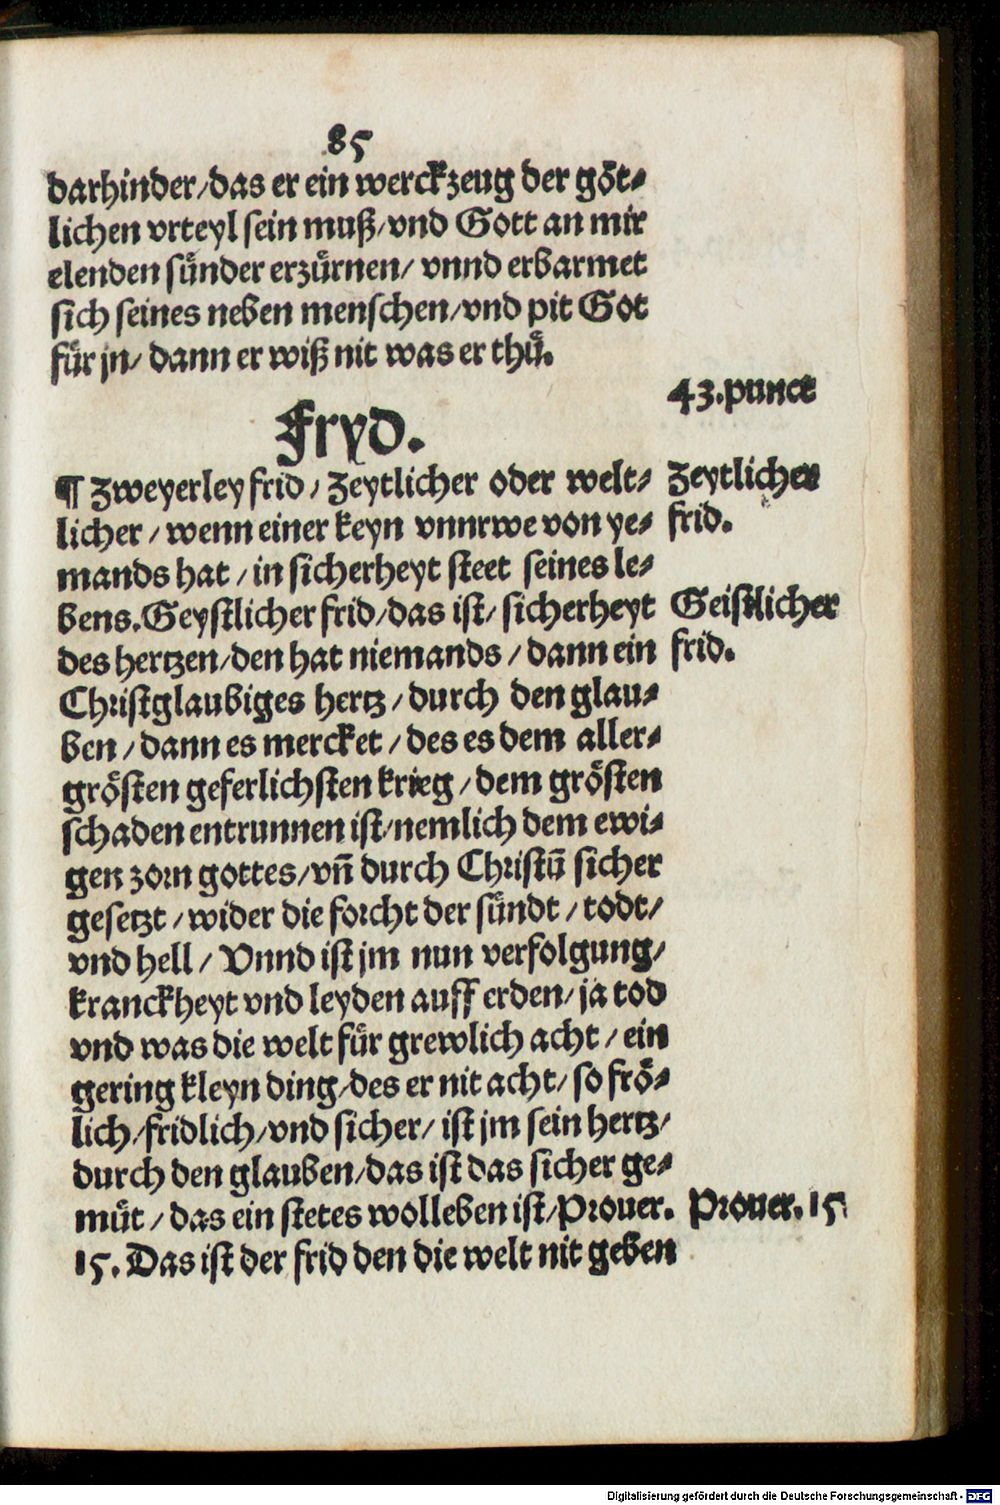 85
darhinder/das er ein werckzeug der göt-
lichen vrteyl sein muß/vnd Gott an mir
elenden sünder erzürnen/ vnnd erbarmet
sich seines neben menschen/vnd pit Got
für jn/ dann er wiß nit was er thů.
43.punct
Fryd.
¶ Zweyerley frid/ Zeytlicher oder welt-
licher/ wenn einer keyn vnnrwe von ye-
mands hat/ in sicherheyt steet seines le-
bens. Geystlicher frid/das ist/ sicherheyt
des hertzen/den hat niemands/ dann ein
Christglaubiges hertz/ durch den glau-
ben/ dann es mercket/ des es dem aller-
grösten geferlichsten krieg/ dem grösten
schaden entrunnen ist/nemlich dem ewi-
gen zorn gottes/vñ durch Christū sicher
gesetzt/ wider die forcht der sündt/ todt/
vnd hell/ Vnnd ist jm nun verfolgung/
kranckheyt vnd leyden auff erden/ ja tod
vnd was die welt für grewlich acht/ ein
gering kleyn ding/des er nit acht/ so frö-
lich/fridlich/vnd sicher/ ist jm sein hertz/
durch den glauben/das ist das sicher ge-
můt/ das ein stetes wolleben ist/Prouer.
15. Das ist der frid den die welt nit geben
Zeytlicher
frid.
Geistlicher
frid.
Prouer. 15
Digitalisierung gefördert durch die Deutsche Forschungsgemeinschaft - DFG